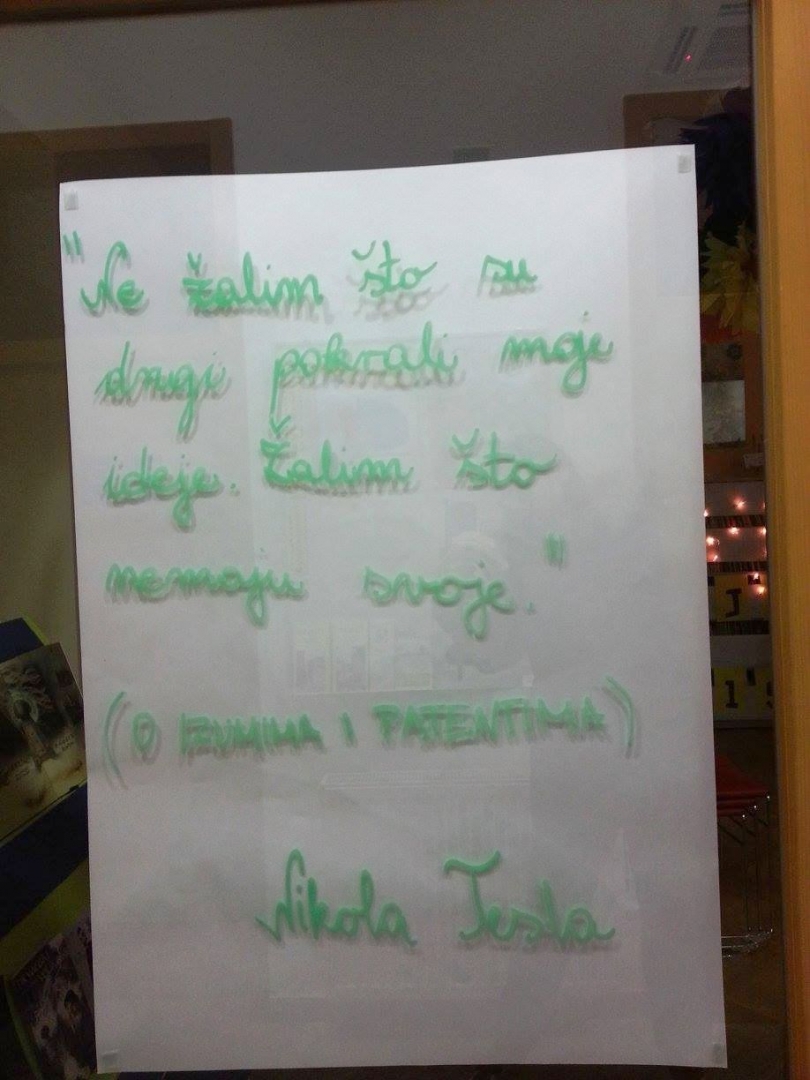 "Ne žalim što su
drugi pokrali moje
ideje. Žalim što
nemaju svoje."
(O IZUMIMA I PATENTIMA)
Nikola Tesla
J
1